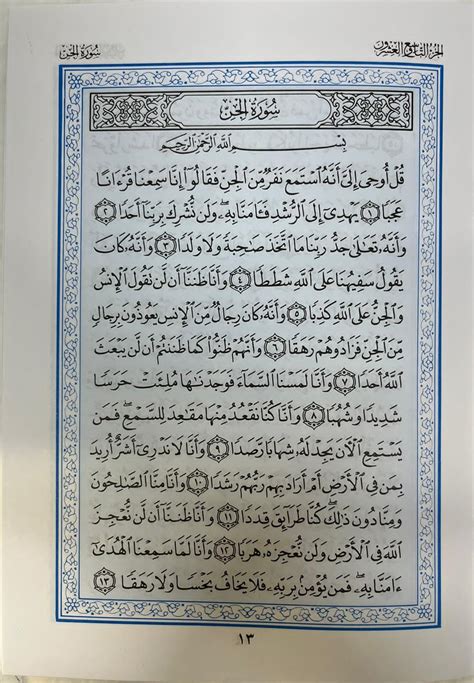 الجزء التاسع والعشرون
سورة الجن
سورة الجن
بسم الله الرحمن الرحيم
قُلْ أُوحِيَ إِلَيَّ أَنَّهُ ٱسْتَمَعَ نَفَرٌ مِّنَ ٱلْجِنِّ فَقَالُوٓا۟ إِنَّا سَمِعْنَا قُرْءَانًا
عَجَبًا ١ يَهْدِىٓ إِلَى ٱلرُّشْدِ فَـَٔامَنَّا بِهِۦ ۖ وَلَن نُّشْرِكَ بِرَبِّنَآ أَحَدًا ٢
وَأَنَّهُۥ تَعَـٰلَىٰ جَدُّ رَبِّنَا مَا ٱتَّخَذَ صَـٰحِبَةً وَلَا وَلَدًا ٣ وَأَنَّهُۥ كَانَ
يَقُولُ سَفِيهُنَا عَلَى ٱللَّهِ شَطَطًا ٤ وَأَنَّا ظَنَنَّآ أَن لَّن تَقُولَ ٱلْإِنسُ
وَٱلْجِنُّ عَلَى ٱللَّهِ كَذِبًا ٥ وَأَنَّهُۥ كَانَ رِجَالٌ مِّنَ ٱلْإِنسِ يَعُوذُونَ بِرِجَالٍ
مِّنَ ٱلْجِنِّ فَزَادُوهُمْ رَهَقًا ٦ وَأَنَّهُمْ ظَنُّوا۟ كَمَا ظَنَنتُمْ أَن لَّن يَبْعَثَ
ٱللَّهُ أَحَدًا ٧ وَأَنَّا لَمَسْنَا ٱلسَّمَآءَ فَوَجَدْنَـٰهَا مُلِئَتْ حَرَسًا
شَدِيدًا وَشُهُبًا ٨ وَأَنَّا كُنَّا نَقْعُدُ مِنْهَا مَقَـٰعِدَ لِلسَّمْعِ ۖ فَمَن
يَسْتَمِعِ ٱلْـَٔانَ يَجِدْ لَهُۥ شِهَابًا رَّصَدًا ٩ وَأَنَّا لَا نَدْرِىٓ أَشَرٌّ أُرِيدَ
بِمَن فِى ٱلْأَرْضِ أَمْ أَرَادَ بِهِمْ رَبُّهُمْ رَشَدًا ١٠ وَأَنَّا مِنَّا ٱلصَّـٰلِحُونَ
وَمِنَّا دُونَ ذَٰلِكَ ۖ كُنَّا طَرَآئِقَ قِدَدًا ١١ وَأَنَّا ظَنَنَّآ أَن لَّن نُّعْجِزَ
ٱللَّهَ فِى ٱلْأَرْضِ وَلَن نُّعْجِزَهُۥ هَرَبًا ١٢ وَأَنَّا لَمَّا سَمِعْنَا ٱلْهُدَىٰٓ
ءَامَنَّا بِهِۦ ۖ فَمَن يُؤْمِنۢ بِرَبِّهِۦ فَلَا يَخَافُ بَخْسًا وَلَا رَهَقًا ١٣
١٣